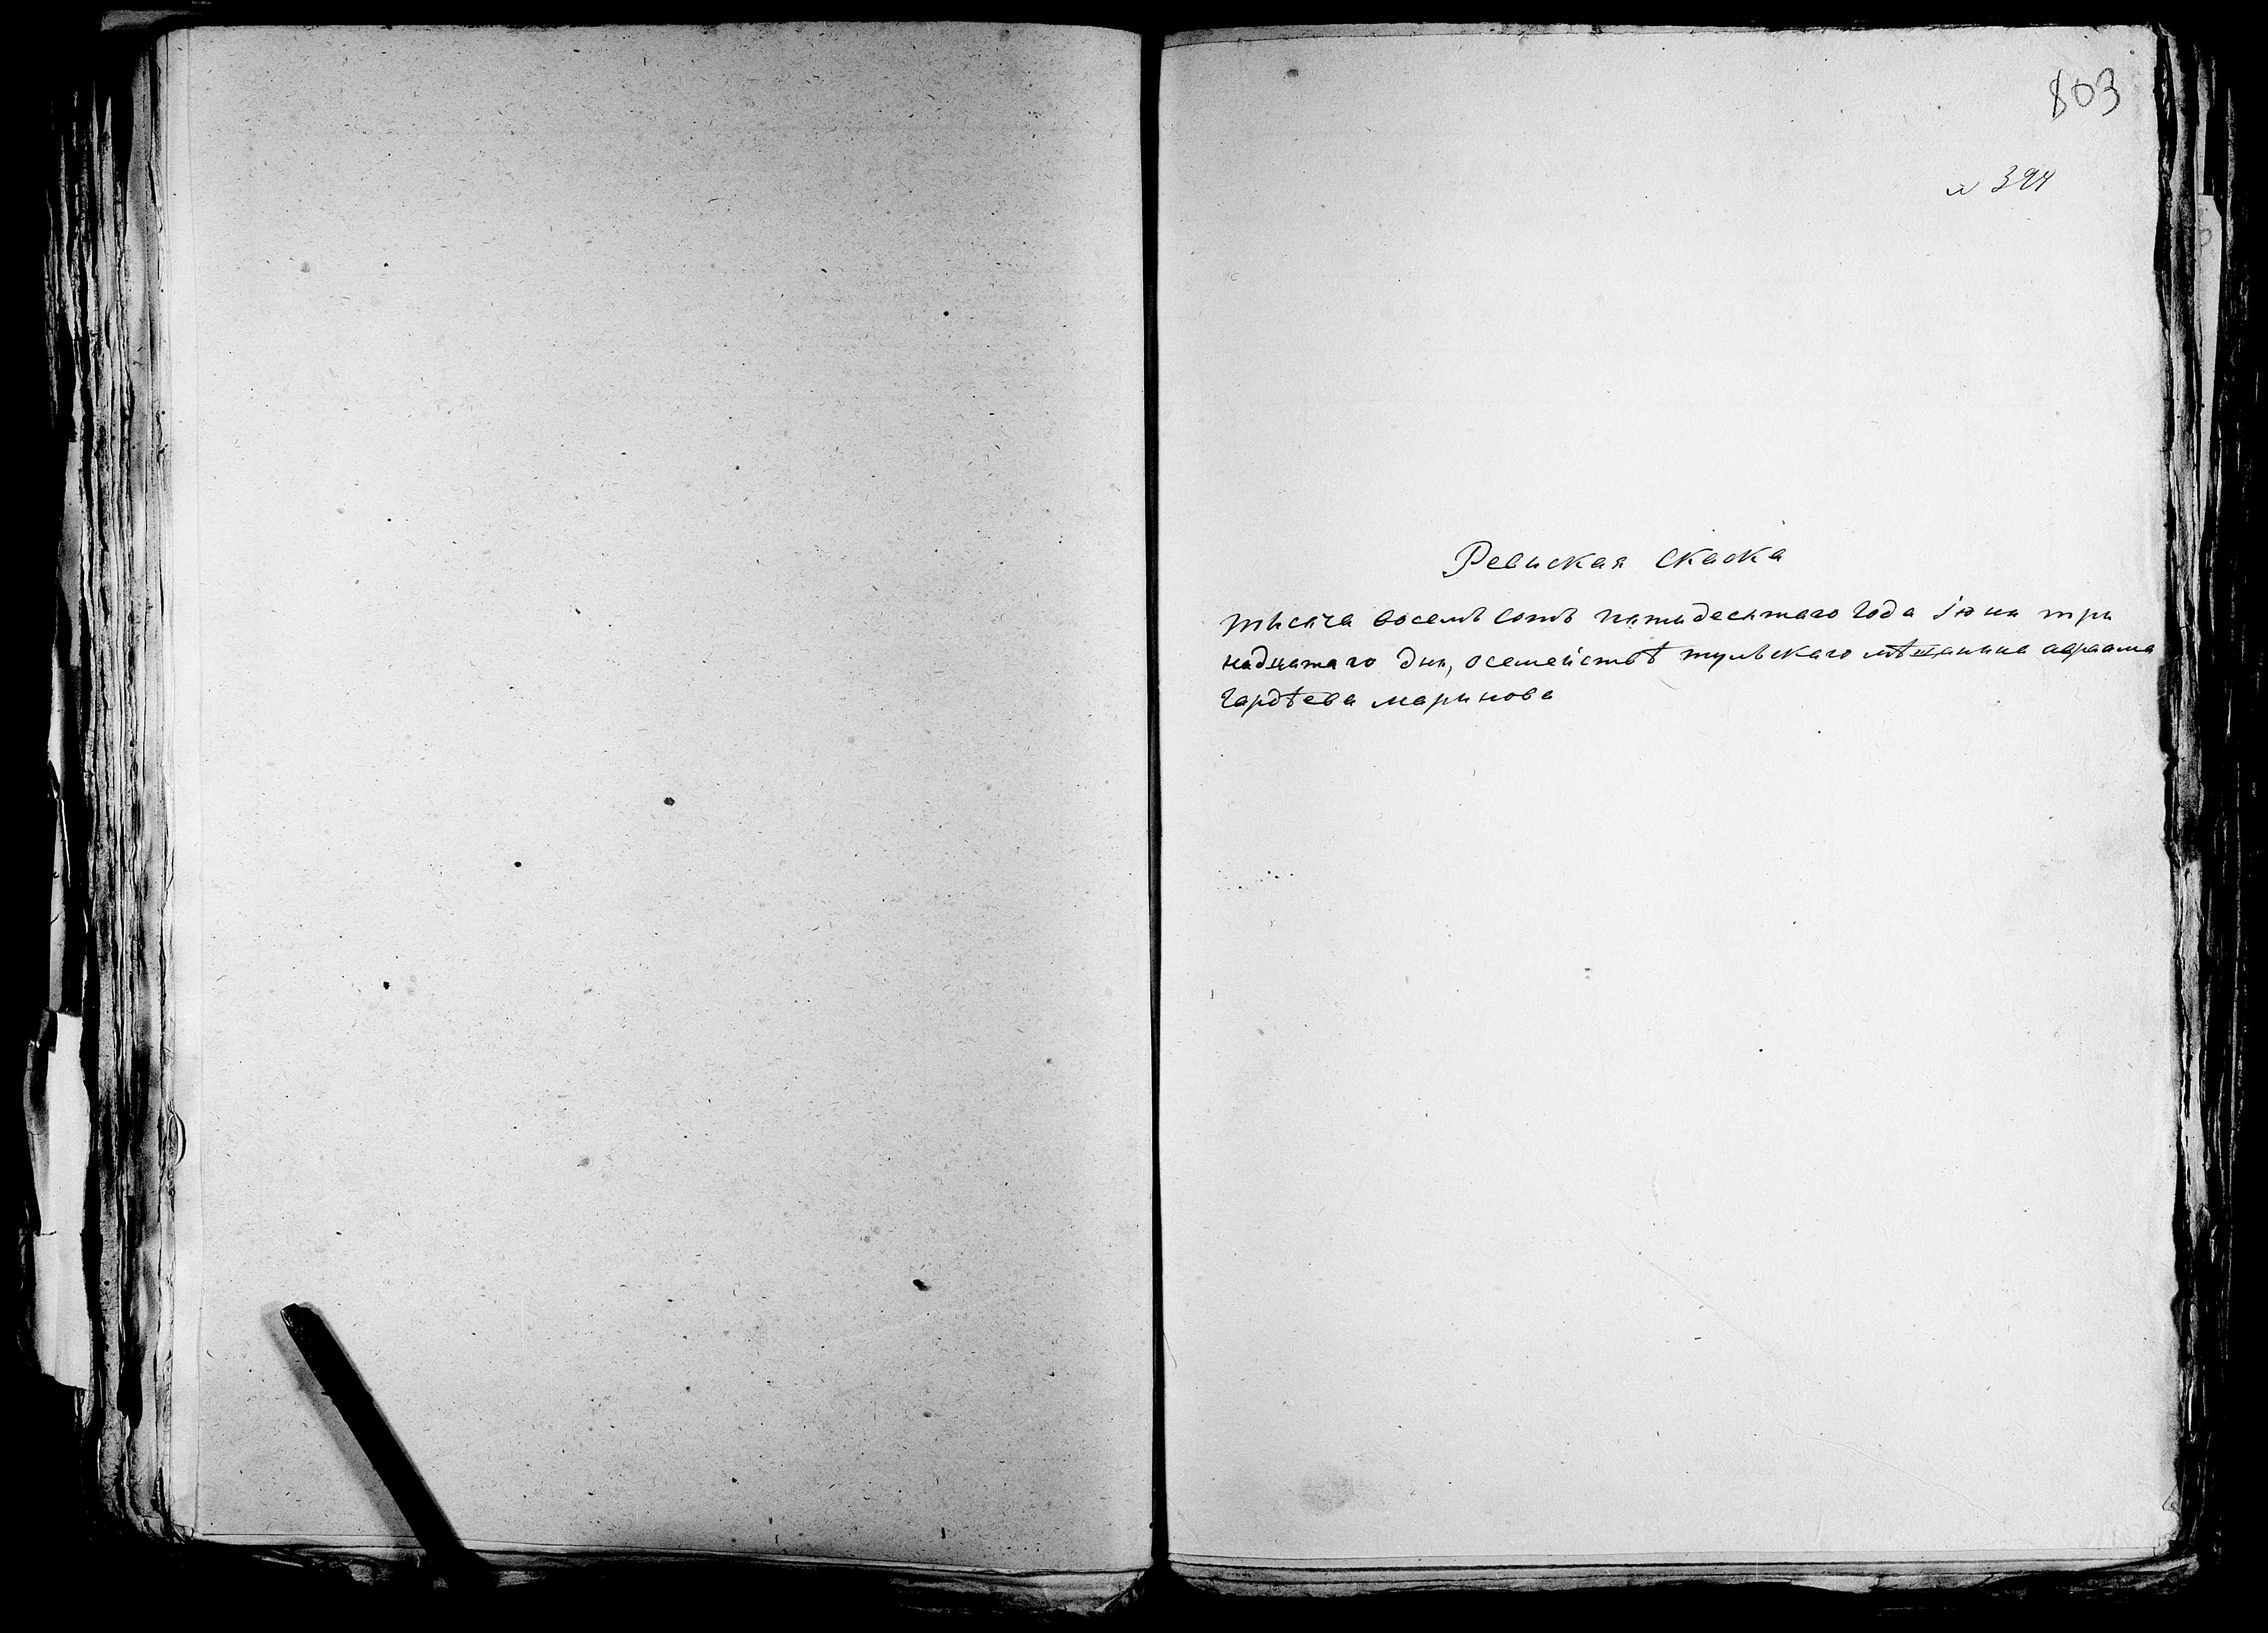 803
№ 394
Ревиская Скаска
тысяча восемь сотъ пятидесятаго года іюня три
надцатаго дня, осемействѣ тульскаго мѣщанина авраама
Гардѣева маринова